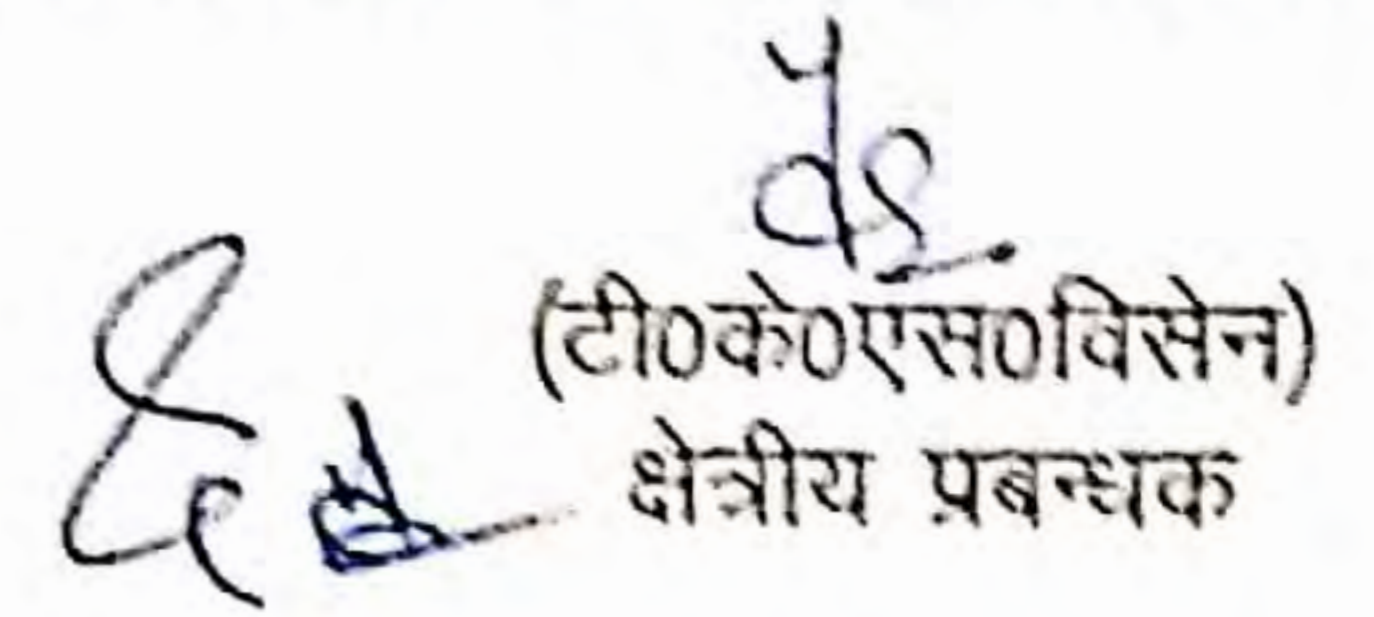 (टी0के0एस0विसेन)
क्षेत्रीय प्रबन्धक